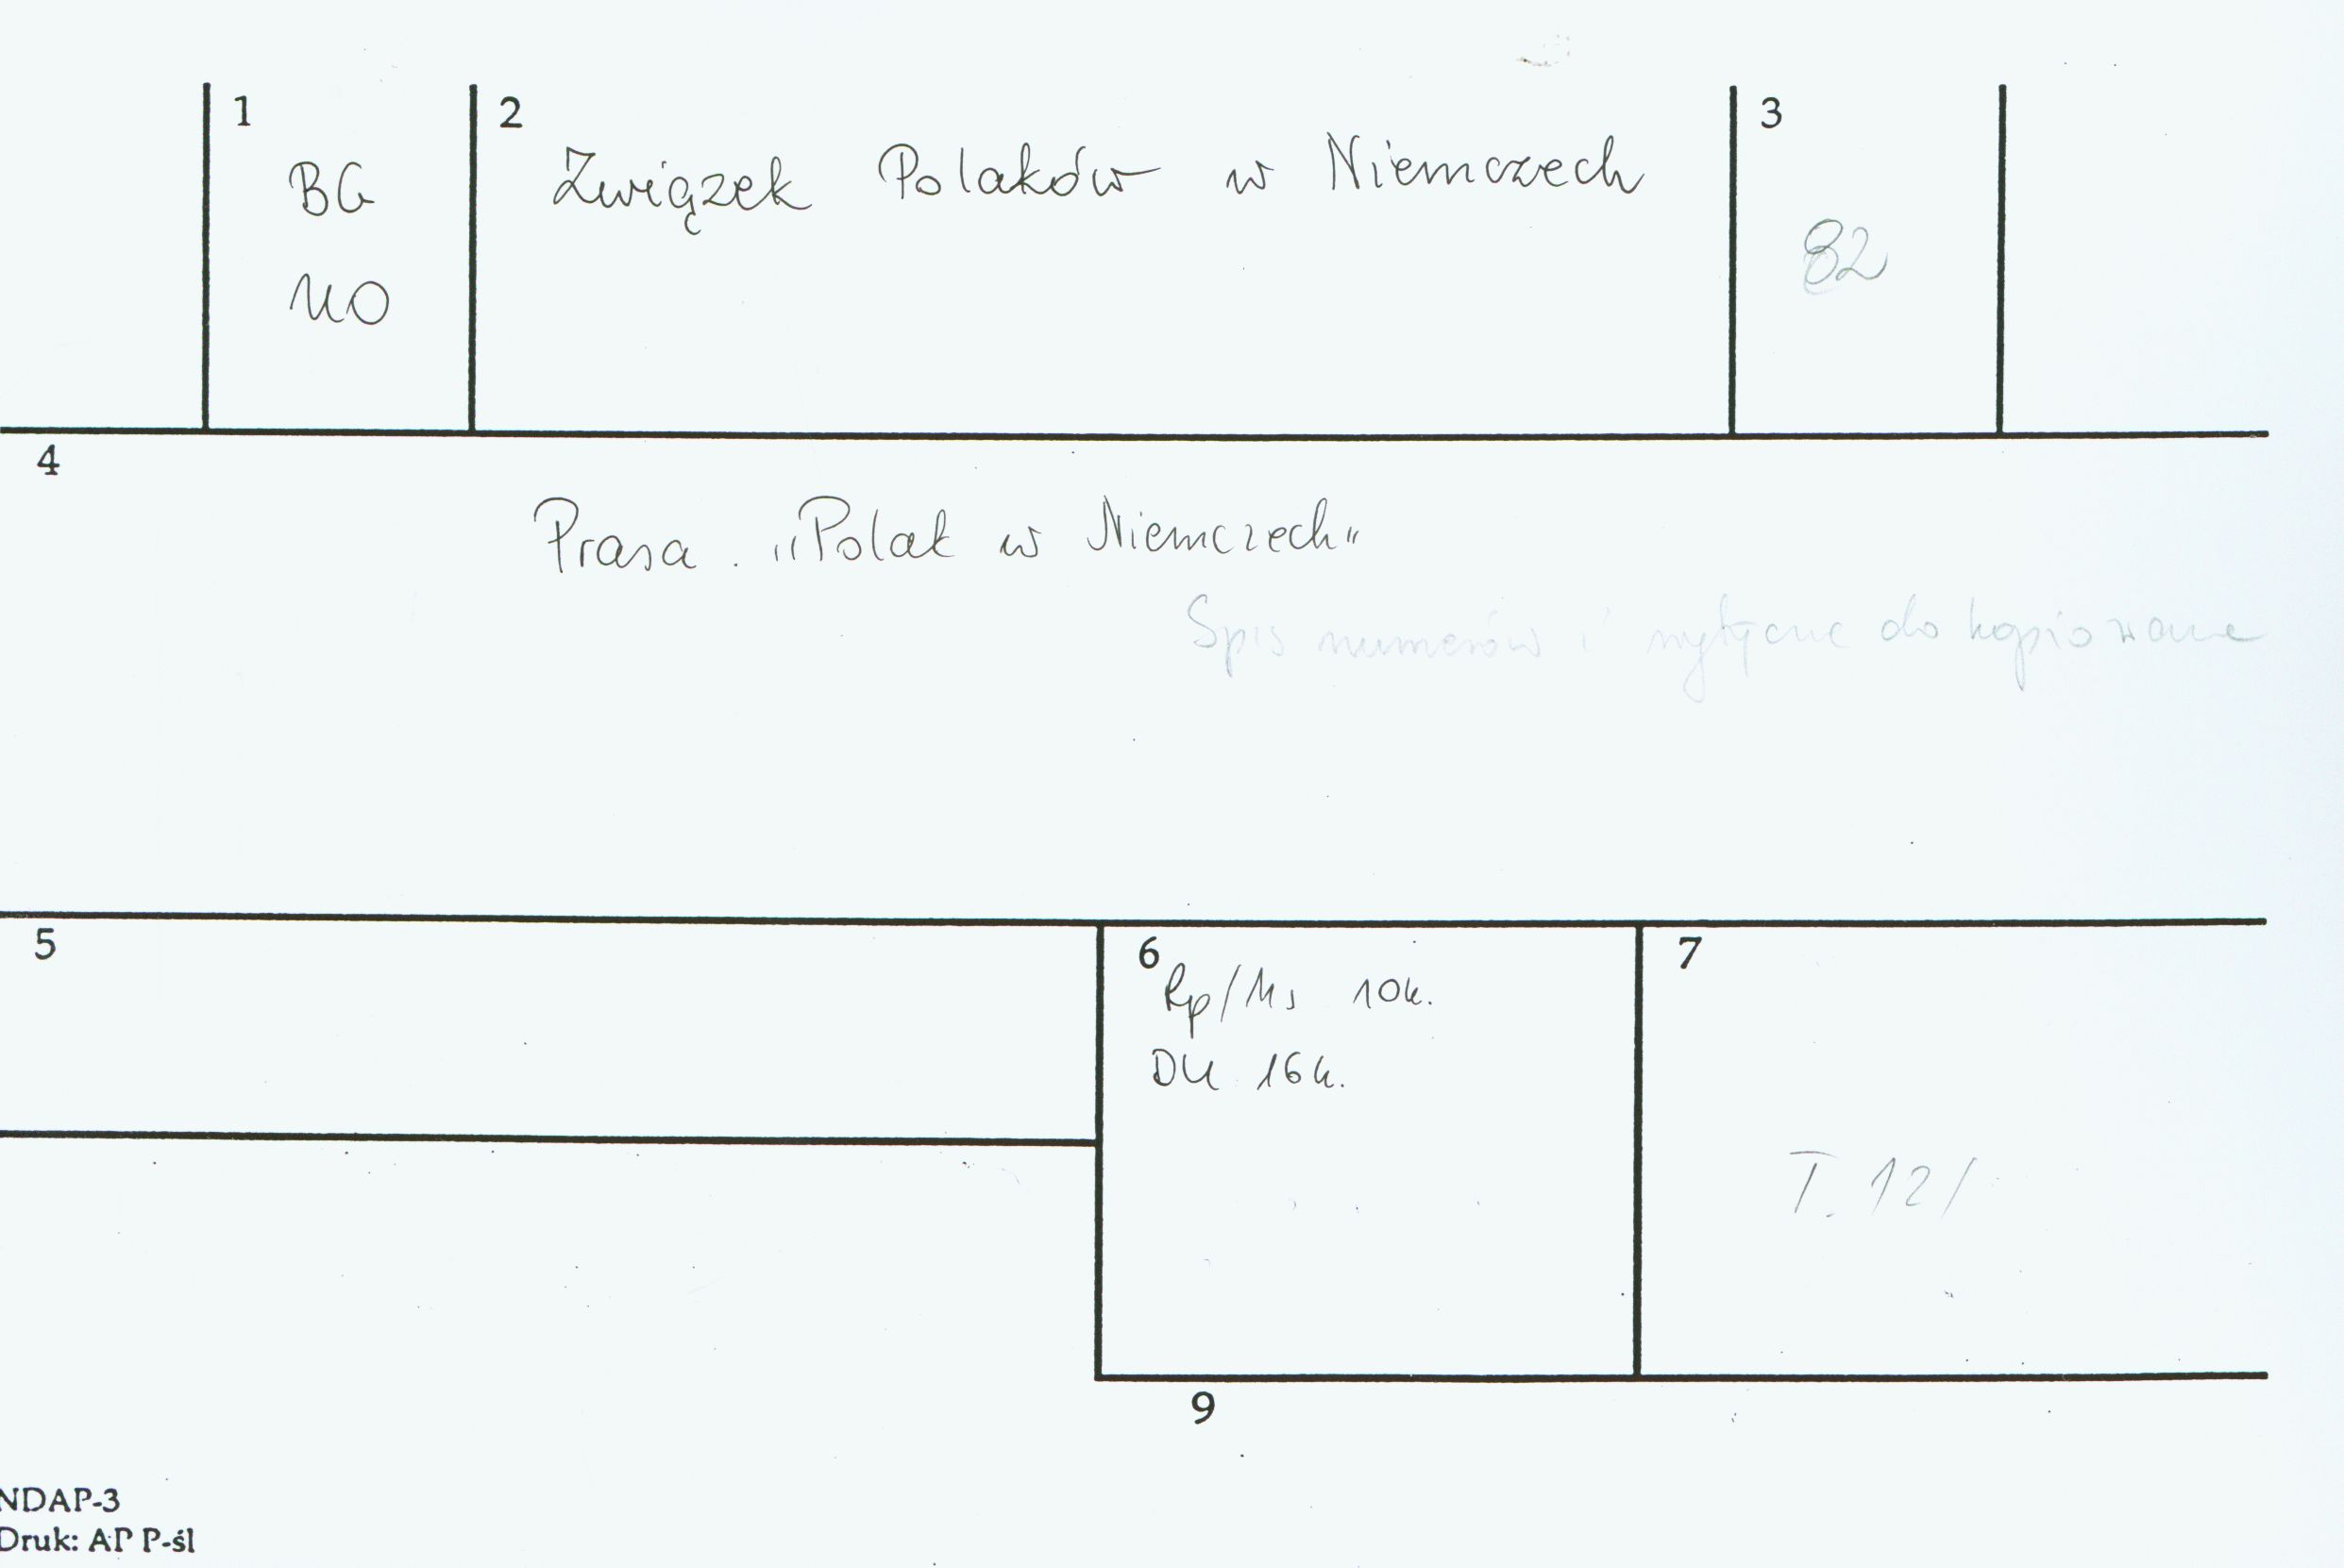 1
BG
110
2
Związek Polaków w Niemczech
3
82
4
Prasa. „Polak w Niemczech"
Spis numerów i wytyczne do kopiowania
5
6
Rp/Ms 10k.
DK 16k.
7
T. 12/
9
NDAP-3
Druk: AP P-śl